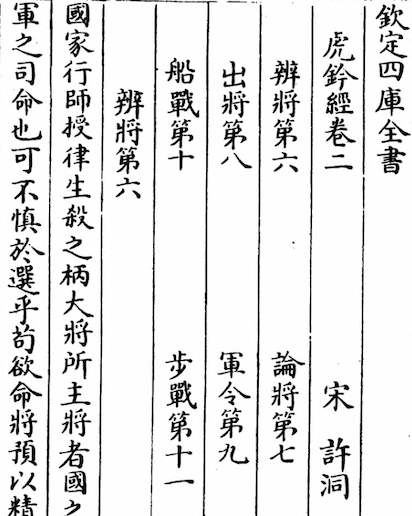 欽定四庫全書
虎鈐經卷二 宋 許洞
辨將第六 論將第七
出將第八 軍令第九
船戰第十 步戰第十一
辨將第六
國家行師授律生殺之柄大將所主將者國之
軍之司命也可不慎於選乎苟欲命將預以精